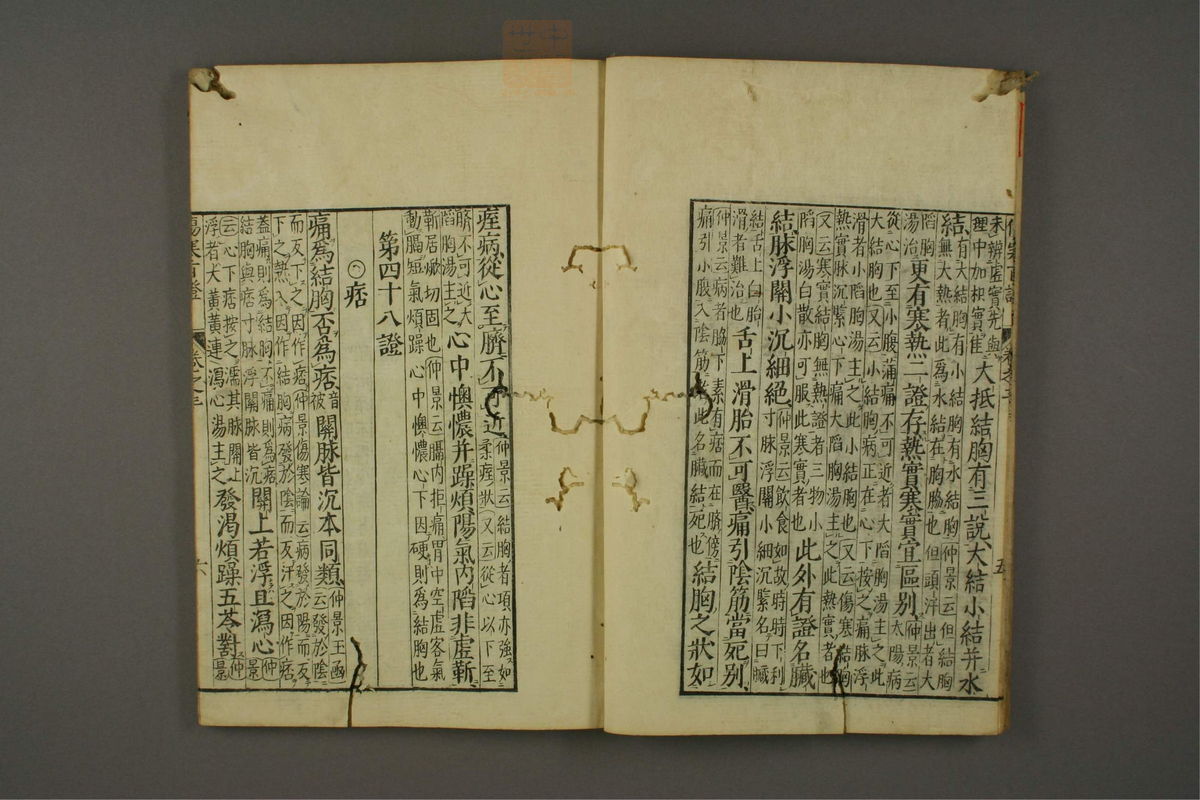 未辨虛實先與理中加枳實 大抵結胸有三說大結小結并水
結有大結胸有小結胸有水結胸仲景云但結胸無大熱者此為水結在胸脇也但頭汗出者大陷胸
湯治 更有寒熱二證存熱實寒實宜區別仲景云
從心下至小腹滿痛不可近者大陷胸湯主之此大結胸也又云小結胸病正在心下按之痛脉浮
滑者小陷胸湯主之此小結胸也又云傷寒結胸熱實脉沉緊心下痛大陷胸湯主之此熱實者也
又云寒實結胸無熱證者三物小陷胸湯白散亦可服此寒實者也 此外有證名臟
結脉浮關小沉細絕仲景云飲食如故時時下利寸脉浮關小細沉緊名曰臟
結舌上白胎滑者難治也 舌上滑胎不可醫痛引陰筋當死別
仲景云病者脇下素有痞而在臍傍痛引小腹入陰筋者此名臟結死也 結胸之狀如
痓病從心至臍不可近仲景云結胸者項亦強如柔痓狀又云從心以下至
臍不可近大陷胸湯主之 心中懊憹并躁煩陽氣內陷非虛靳
靳居焮切固也仲景云膈內拒痛胃中空虛客氣動膈短氣煩躁心中懊憹心下因硬則為結胸也
第四十八證
㊀痞
痛為結胸否為痞音被 關脉皆沉本同類仲景玉函云發於陰
而反下之因作痞仲景傷寒論云病發於陽而反下之熱入因作結胸病發於陰而反汗之因作痞
蓋痛則為結胸不痛則為痞結胸與痞寸脉浮關脉皆沉 關上若浮且瀉心仲景
云心下痞按之濡其脉關上浮者大黃黃連瀉心湯主之 發渴煩躁五苓對仲景
傷寒百證
卷之三
五
六